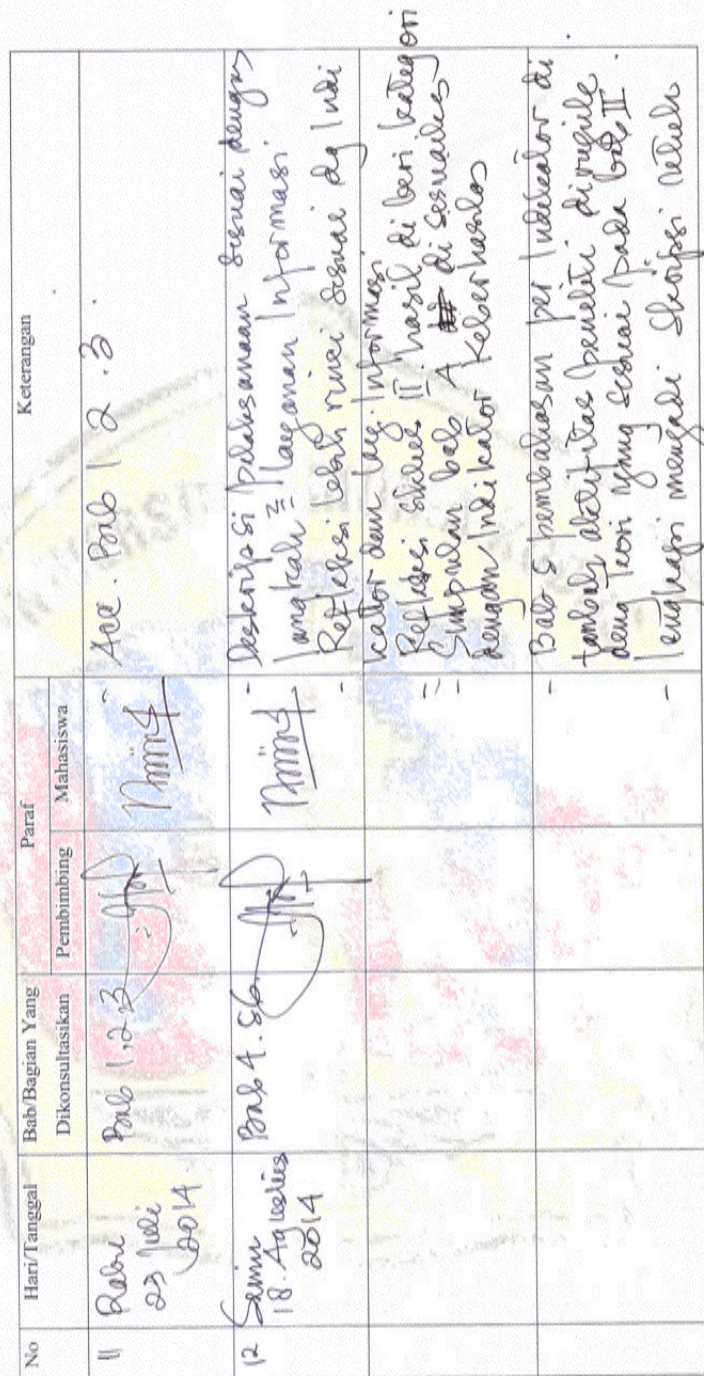 No Hari/Tanggal Bab/Bagian Yang Dikonsultasikan Paraf Keterangan
Pembimbing Mahasiswa
11 Rabu
23 Juli
2014
Bab 1,2,3
- Acc. Bab 1 2.3.
12 Senin
18. Agustus
2014
Bab 4. 5 6.
- Deskripsi pelaksanaan sesuai dengan
langkah = layanan Informasi
- Refleksi lebih rinci sesuai dg Indi
kator dan lay. Informasi
= Refleksi siklus II hasil di beri kategori
- Simpulan bab 4 di sesuaikan
dengan Indikator keberhasilan
- Bab 5 pembahasan per Indikator di
tambah aktivitas peneliti
deng teori yang sesuai pada bab II.
- lengkapi menjadi skripsi utuh